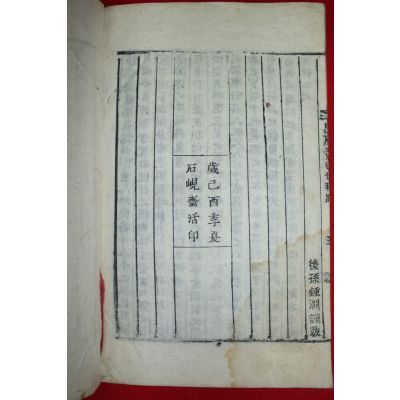 後孫鍾淵謹跋
歲己酉季夏
石峴齋活印